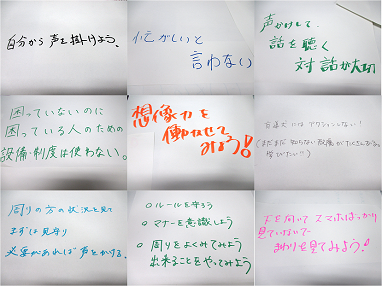 自分から声を掛けよう。
忙しいと
言わない
声かけして、
話を聴く
対話が大切
困っていないのに
困っている人のための
設備・制度は使わない。
想像力を
働かせて
みよう!
盲導犬にはアクションしない!
(まだまだ知らない設備がたくさんあるので
学びたい!!)
周りの方の状況を見て
まずは見守り
必要があれば声をかける。
○ルールを守ろう
○マナーを意識しよう
○周りをよくみてみよう
出来ることをやってみよう
下を向いてスマホばっかり
見ていないで
まわりを見てみよう!